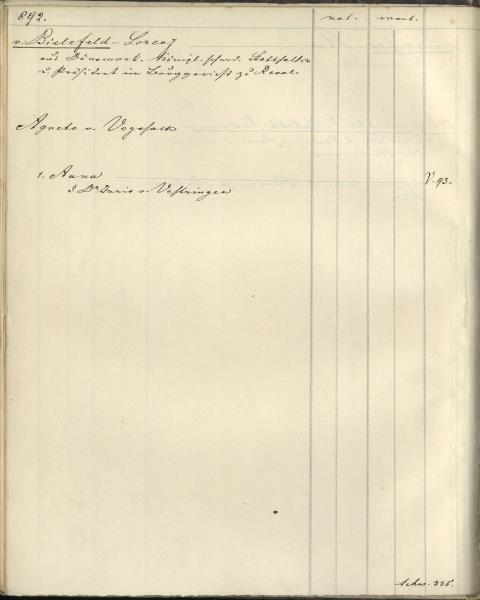 892. nat. mort.
v. Bielefeld - Lorenz
aus Dänemark. Königl. schwed. Statthalter
u. Präsident im Burggericht zu Reval.
Agneta v. Vegesack
1. Anna V. 93.
v. Vestringen
Schw. 335.